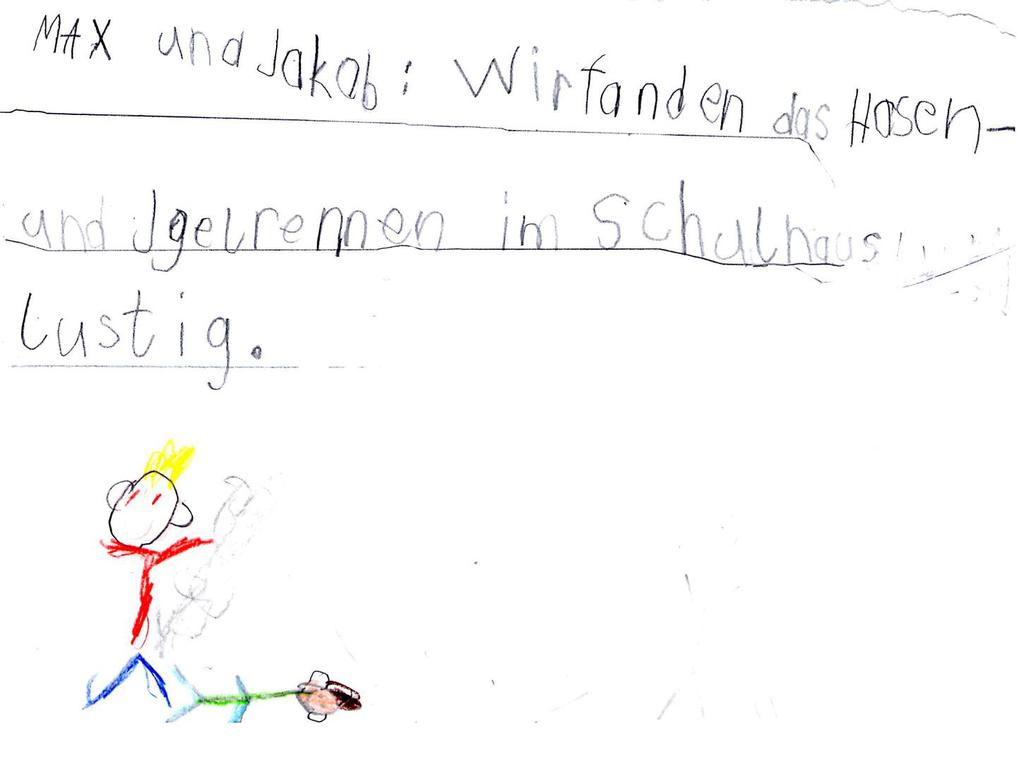 MAX und Jakob: Wir fanden das Hasen-
und Jgelrennen im Schulhaus
lustig.